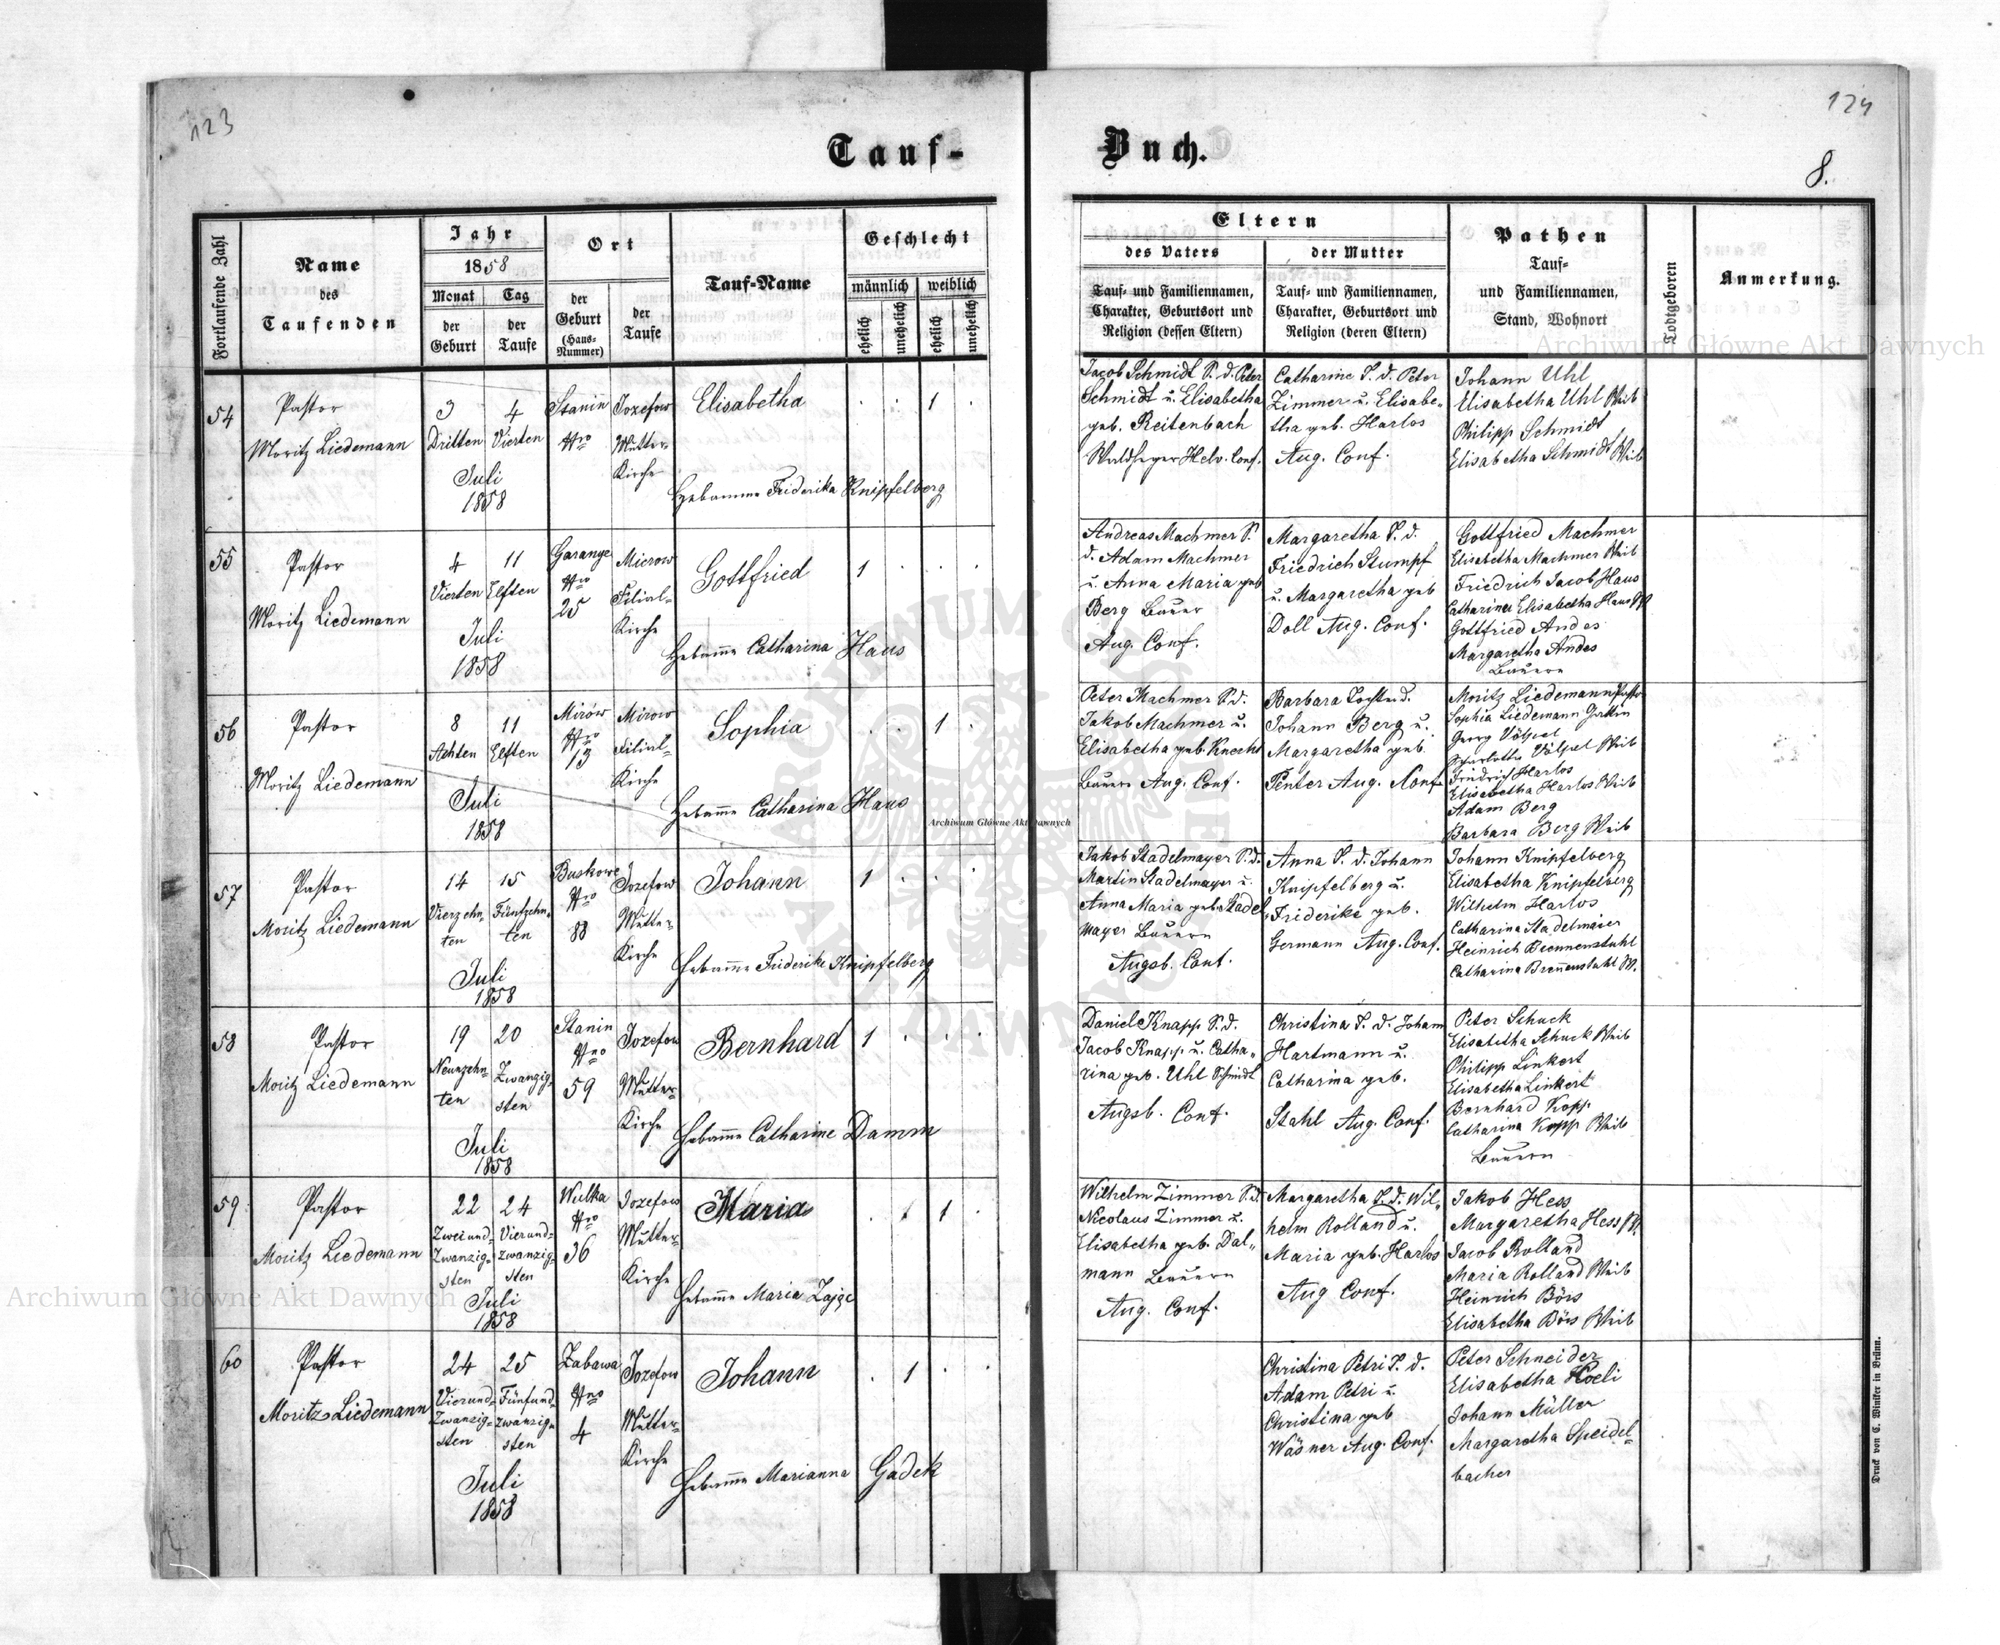 123
124
Tauf-
Buch.
8.
Fortlaufende Zahl
Name
des
Taufenden
Jahr
1858
Monat
Tag
der
Geburt
der
Taufe
Ort
der
Geburt
(Haus-
Nummer)
der
Taufe
Tauf-Name
Geschlecht
männlich
weiblich
ehelich
unehelich
ehelich
unehelich
Eltern
des Vaters
der Mutter
Tauf- und Familiennamen,
Charakter, Geburtsort und
Religion (dessen Eltern)
Tauf- und Familiennamen,
Charakter, Geburtsort und
Religion (deren Eltern)
Pathen
Tauf-
und Familiennamen,
Stand, Wohnort
Todtgeboren
Anmerkung.
54
Pastor
Moritz Liedemann
3
Dritten
4
Vierten
Juli
1858
Stanin
Nro
Jozefow
Mutter-
Kirche
Elisabetha
1
Hebamme Friderika Knipfelberg
Jacob Schmidt S. d. Peter
Schmidt u. Elisabetha
geb. Reitenbach
Helv. Conf.
Catharine T. d. Peter
Zimmer u. Elisabe-
tha geb. Harlos
Aug. Conf.
Johann Uhl
Elisabetha Uhl Weib
Philipp Schmidt
Elisabetha Schmidt Weib
55
Pastor
Moritz Liedemann
4
Vierten
11
Elften
Juli
1858
Nro
25
Mierow
Filial-
Kirche
Gottfried
1
Hebamme Catharina Haus
Andreas Machmer S.
d. Adam Machmer
u. Anna Maria geb
Berg Bauer
Aug. Conf.
Margaretha T. d.
Friedrich Stumpf
u. Margaretha geb
Doll Aug. Conf.
Gottfried Machmer
Elisabetha Machmer Weib
Friedrich Jacob Haus
Catharina Elisabetha Haus W
Gottfried Andes
Margaretha Andes
Bauern
56
Pastor
Moritz Liedemann
8
Achten
11
Elften
Juli
1858
Mirów
Nro
13
Mirow
Filial-
Kirche
Sophia
1
Hebamme Catharina Haus
Peter Machmer S. d.
Jakob Machmer u.
Elisabetha geb. Knecht
Bauern Aug. Conf.
Barbara Tochter d.
Johann Berg u.
Margaretha geb.
Penter Aug. Conf
Moritz Liedemann Pastor
Sophia Liedemann Gattin
Georg Völpel
Charlotta Völpel Weib
Friedrich Harlos
Elisabetha Harlos Weib
Adam Berg
Barbara Berg Weib
57
Pastor
Moritz Liedemann
14
Vierzehn-
ten
15
Fünfzehn-
ten
Juli
1858
Buskowe
Nro
88
Jozefow
Mutter-
Kirche
Johann
1
Hebamme Friderike Knipfelberg
Jakob Stadelmayer S. d.
Martin Stadelmayer u.
Anna Maria geb. Stadel-
mayer Bauern
Augsb. Conf.
Anna T. d. Johann
Knipfelberg u.
Friderike geb.
Germann Aug. Conf.
Johann Knipfelberg
Elisabetha Knipfelberg
Wilhelm Harlos
Catharina Stadelmaier
Heinrich Brennenstuhl
Catharina Brennenstuhl W.
58
Pastor
Moritz Liedemann
19
Neunzehn-
ten
20
Zwanzig-
sten
Juli
1858
Stanin
Nro
59
Jozefow
Mutter-
Kirche
Bernhard
1
Hebamme Catharine Damm
Daniel Knapp S. d.
Jacob Knapp u. Catha-
rina geb. Uhl Schmidt
Augsb. Conf.
Christina T. d. Johann
Hartmann u.
Catharina geb.
Stahl Aug. Conf.
Peter Schuck
Elisabetha Schuck Weib
Philipp Linkert
Elisabetha Linkert
Bernhard Kopp
Catharina Kopp Weib
Bauern
59
Pastor
Moritz Liedemann
22
Zweiund-
Zwanzig-
sten
24
Vierund-
zwanzig-
sten
Juli
1858
Wulka
Nro
36
Jozefow
Mutter-
Kirche
Maria
1
Hebamme Maria Zając
Wilhelm Zimmer S. d.
Nicolaus Zimmer u.
Elisabetha geb. Dal-
mann Bauern
Aug. Conf.
Margaretha T. d. Wil-
helm Rolland u.
Maria geb. Harlos
Aug Conf.
Jakob Hess
Margaretha Hess W.
Jacob Rolland
Maria Rolland Weib
Heinrich Börs
Elisabetha Börs Weib
60
Pastor
Moritz Liedemann
24
Vierund-
Zwanzig-
sten
25
Fünfund-
zwanzig-
sten
Juli
1858
Zabawa
Nro
4
Jozefow
Mutter-
Kirche
Johann
1
Hebamme Marianna Gadek
Christina Petri T. d.
Adam Petri u.
Christina geb
Wäsner Aug. Conf.
Peter Schneider
Elisabetha Koeli
Johann Müller
Margaretha Speidel-
bacher
Druck von C. Winiker in Brünn.
Archiwum Główne Akt Dawnych
Archiwum Główne Akt Dawnych
Archiwum Główne Akt Dawnych